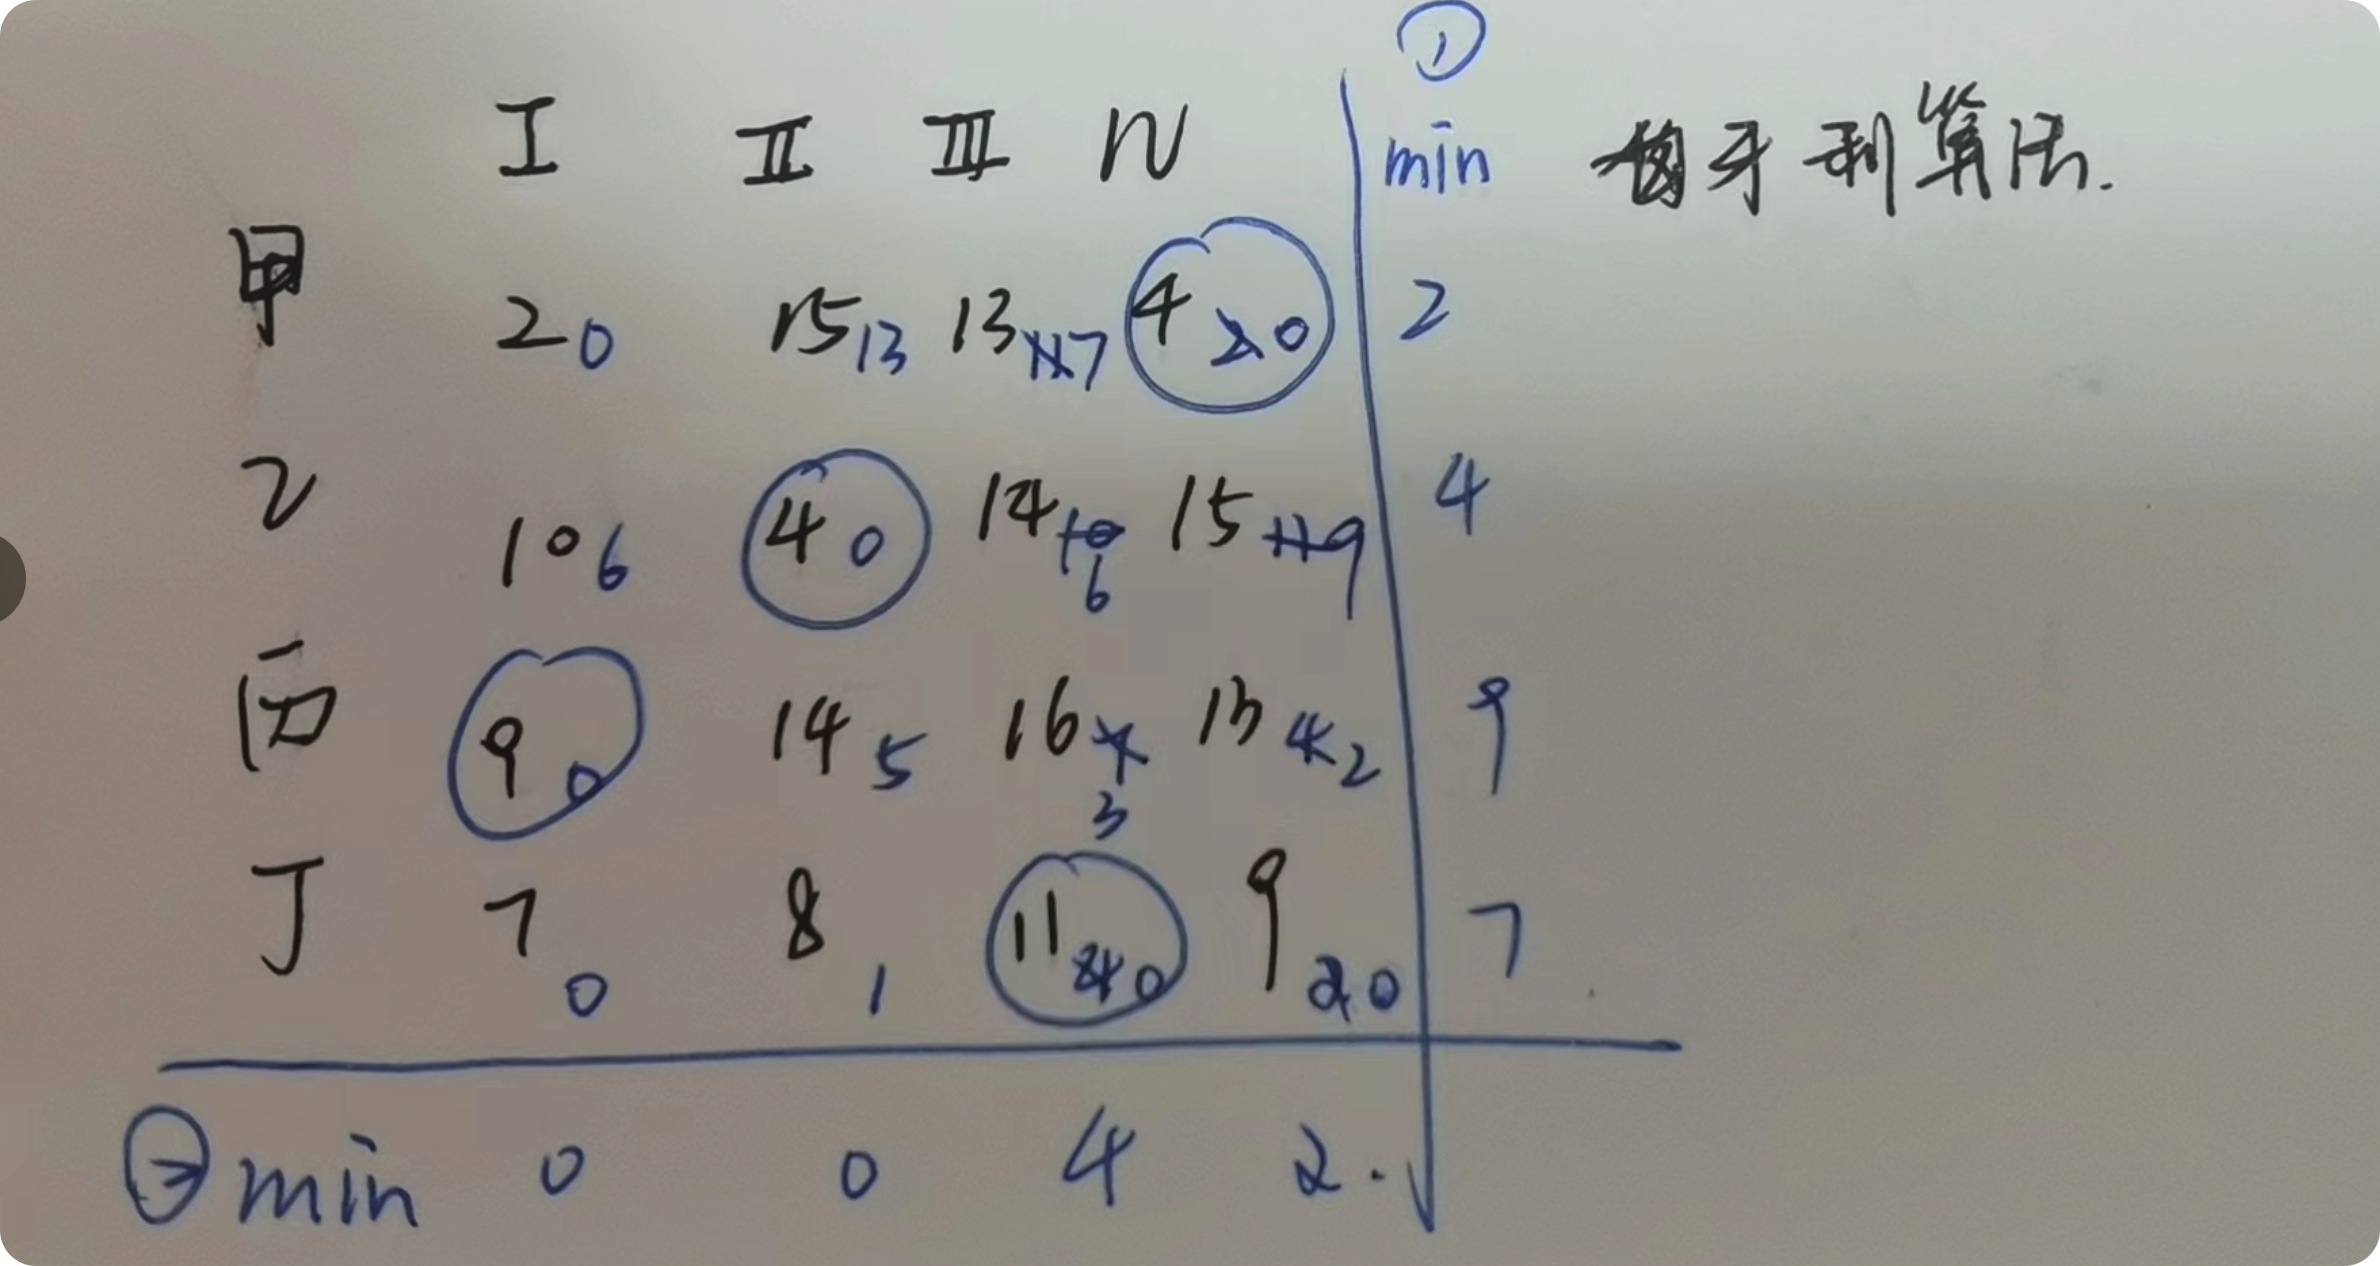 ①
I II III IV min 匈牙利算法.
甲 2 0 15 13 13 11 7 4 2 0 2
乙 10 6 4 0 14 10 6 15 11 9 4
丙 9 0 14 5 16 7 3 13 4 2 9
丁 7 0 8 1 11 4 0 9 2 0 7
② min 0 0 4 2.